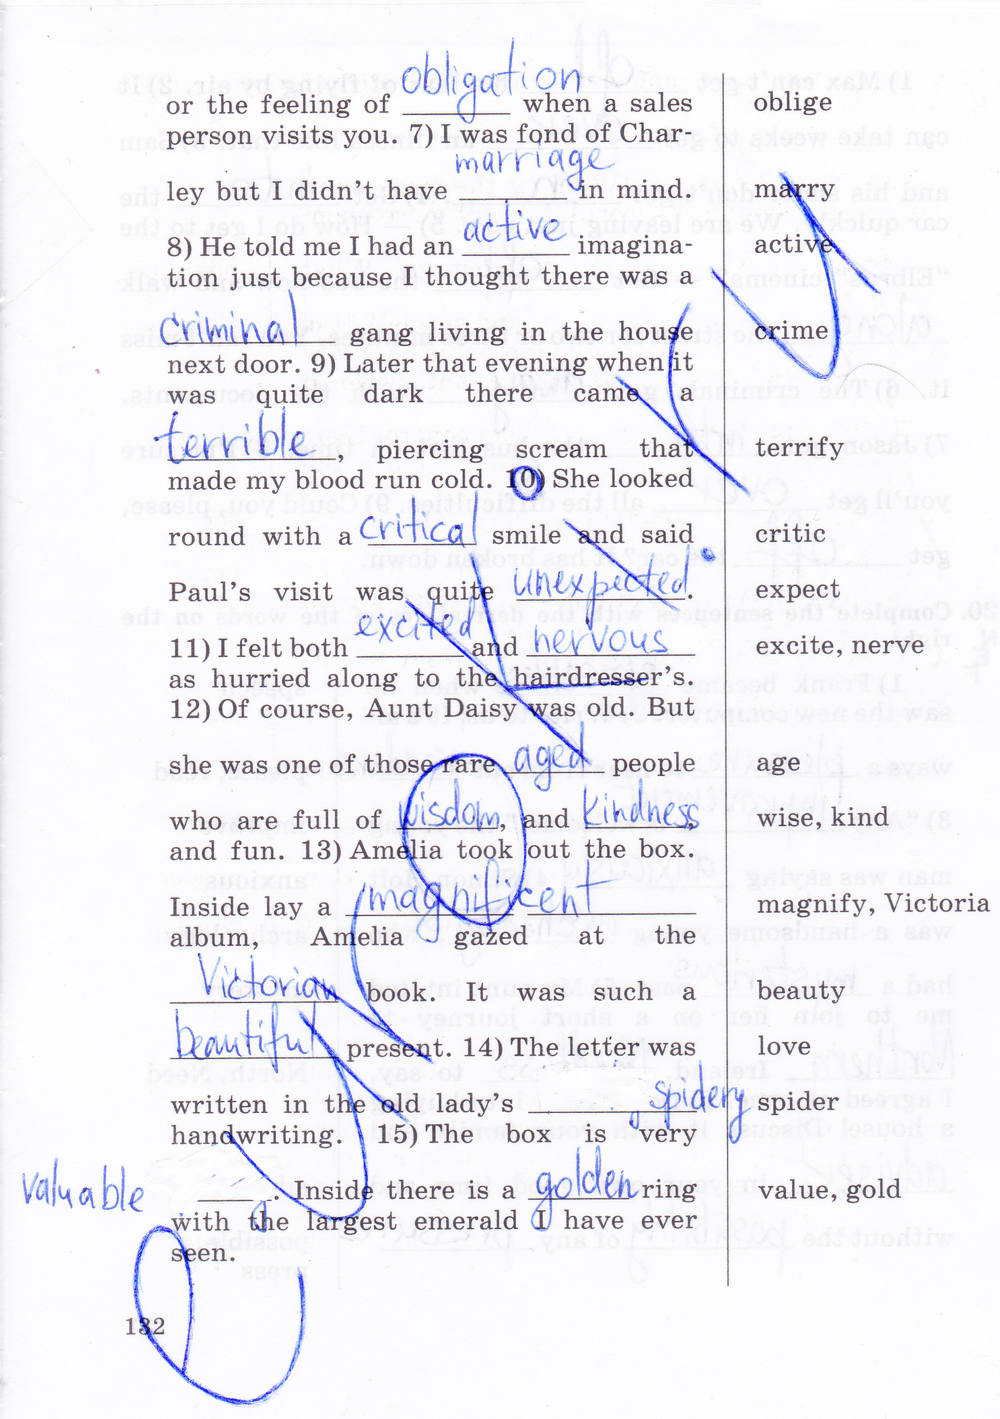 or the feeling of obligation when a sales oblige
person visits you. 7) I was fond of Char-
ley but I didn't have marriage in mind. marry
8) He told me I had an active imagina- active
tion just because I thought there was a
criminal gang living in the house crime
next door. 9) Later that evening when it
was quite dark there came a
terrible, piercing scream that terrify
made my blood run cold. 10) She looked
round with a critical smile and said critic
Paul's visit was quite unexpected. expect
11) I felt both excited and nervous excite, nerve
as hurried along to the hairdresser's.
12) Of course, Aunt Daisy was old. But
she was one of those rare aged people age
who are full of wisdom, and kindness wise, kind
and fun. 13) Amelia took out the box.
Inside lay a magnificent magnify, Victoria
album, Amelia gazed at the
Victorian book. It was such a beauty
beautiful present. 14) The letter was love
written in the old lady's spidery spider
handwriting. 15) The box is very
valuable. Inside there is a golden ring value, gold
with the largest emerald I have ever
seen.
132